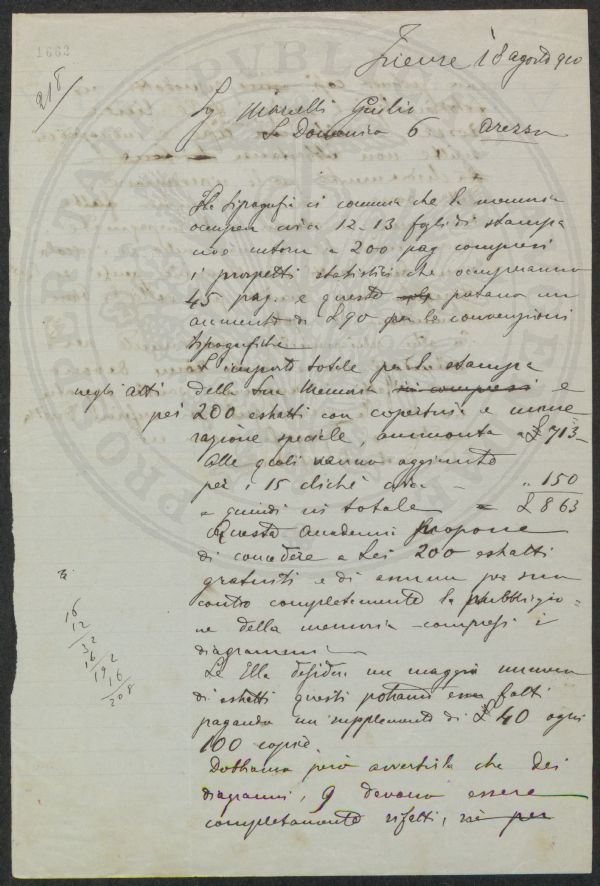 1662
218
Firenze 18 agosto 910
Sg Marcelli Giulio
S. Domenico 6 Arezzo
La tipografia ci comunica che la memoria
occuperà circa 12-13 fogli di stampa
cioè intorno a 200 pag compresi
i prospetti statistici che occuperanno
45 pag. e questo portano un
aumento di £90 per le convenzioni
tipografiche.
L'importo totale per la stampa
negli atti della Sua Memoria in compressi e
pei 200 estratti con copertina e nume
razione speciale, ammonta a £ 713-
Alle quali vanno aggiunte
per i 15 clichè circa - " 150
e quindi in totale = £ 863
Questa Accademia propone
di concedere a Lei 200 estratti
gratuiti e di assumere per suo
conto completamente la pubblicazio=
ne della memoria compresi i
diagrammi
Se Ella desidera un maggior numero
di estratti questi potranno esser fatti
pagando un supplemento di £ 40 ogni
100 copie.
Dobbiamo però avvertirla che dei
diagrammi, 9 devono essere
completamente rifatti, per
16
12
32
16
192
16
208
PROSPERITATI PUBLICAE